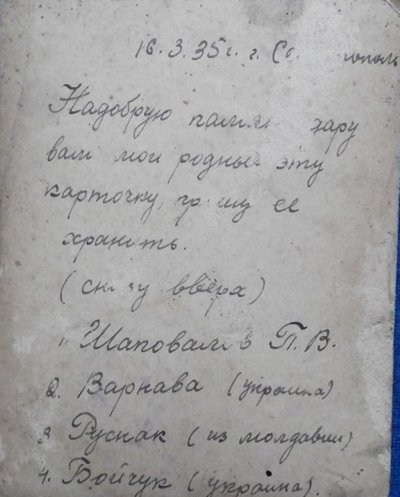 16.3.35г. г.
На добрую дару
вам мои родные эту
карточку, ее
хранить.
( вверх)
1. Шаповалов П.В.
2. Варнава (украина)
3. Руснак (из молдавии)
4. Бойчук (украина)